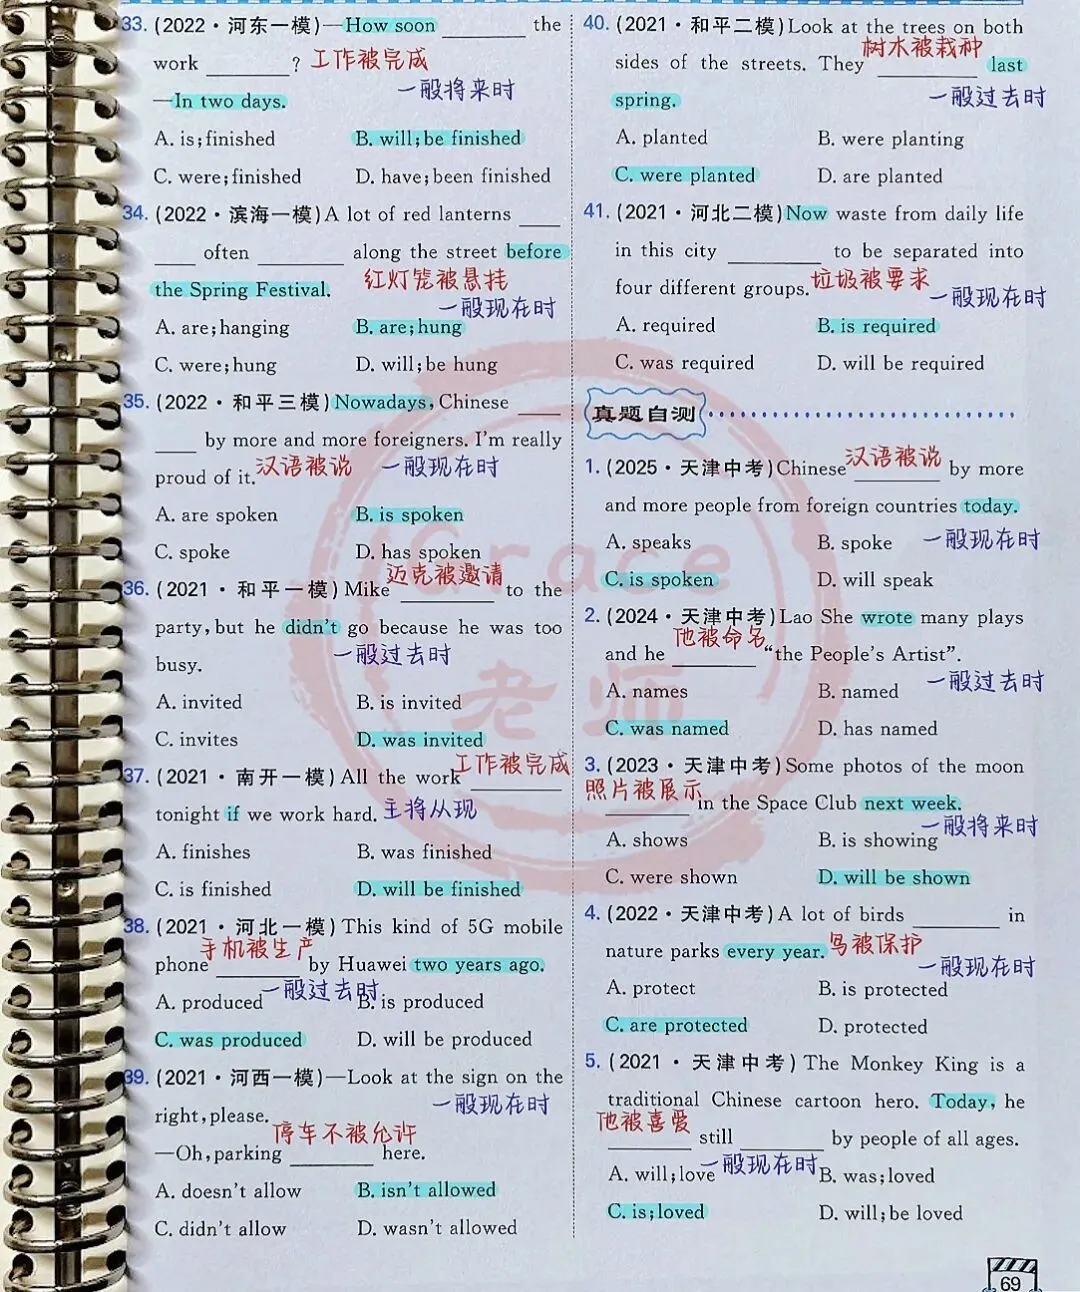 33. (2022·河东一模)—How soon ________ the
work ________? 工作被完成
—In two days. 一般将来时
A. is;finished B. will;be finished
C. were;finished D. have;been finished
34. (2022·滨海一模)A lot of red lanterns ____
____ often ________ along the street before
the Spring Festival. 红灯笼被悬挂
一般现在时
A. are;hanging B. are;hung
C. were;hung D. will;be hung
35. (2022·和平三模)Nowadays, Chinese ____
____ by more and more foreigners. I'm really
proud of it. 汉语被说 一般现在时
A. are spoken B. is spoken
C. spoke D. has spoken
迈克被邀请
36. (2021·和平一模) Mike ________ to the
party, but he didn't go because he was too
busy. 一般过去时
A. invited B. is invited
C. invites D. was invited
工作被完成
37. (2021·南开一模) All the work ________
tonight if we work hard. 主将从现
A. finishes B. was finished
C. is finished D. will be finished
38. (2021·河北一模) This kind of 5G mobile
手机被生产
phone ________ by Huawei two years ago.
一般过去时
A. produced B. is produced
C. was produced D. will be produced
39. (2021·河西一模)—Look at the sign on the
right, please. 一般现在时
停车不被允许
—Oh, parking ________ here.
A. doesn't allow B. isn't allowed
C. didn't allow D. wasn't allowed
40. (2021·和平二模)Look at the trees on both
树木被栽种
sides of the streets. They ________ last
spring. 一般过去时
A. planted B. were planting
C. were planted D. are planted
41. (2021·河北二模)Now waste from daily life
in this city ________ to be separated into
four different groups. 垃圾被要求
一般现在时
A. required B. is required
C. was required D. will be required
真题自测
1. (2025·天津中考)Chinese ________ by more
汉语被说
and more people from foreign countries today.
A. speaks B. spoke 一般现在时
C. is spoken D. will speak
2. (2024·天津中考)Lao She wrote many plays
他被命名
and he ________ "the People's Artist".
一般过去时
A. names B. named
C. was named D. has named
3. (2023·天津中考)Some photos of the moon
照片被展示
________ in the Space Club next week.
一般将来时
A. shows B. is showing
C. were shown D. will be shown
4. (2022·天津中考)A lot of birds ________ in
nature parks every year. 鸟被保护
一般现在时
A. protect B. is protected
C. are protected D. protected
5. (2021·天津中考) The Monkey King is a
traditional Chinese cartoon hero. Today, he
他被喜爱
________ still ________ by people of all ages.
一般现在时
A. will;love B. was;loved
C. is;loved D. will;be loved
Grace
老师
69